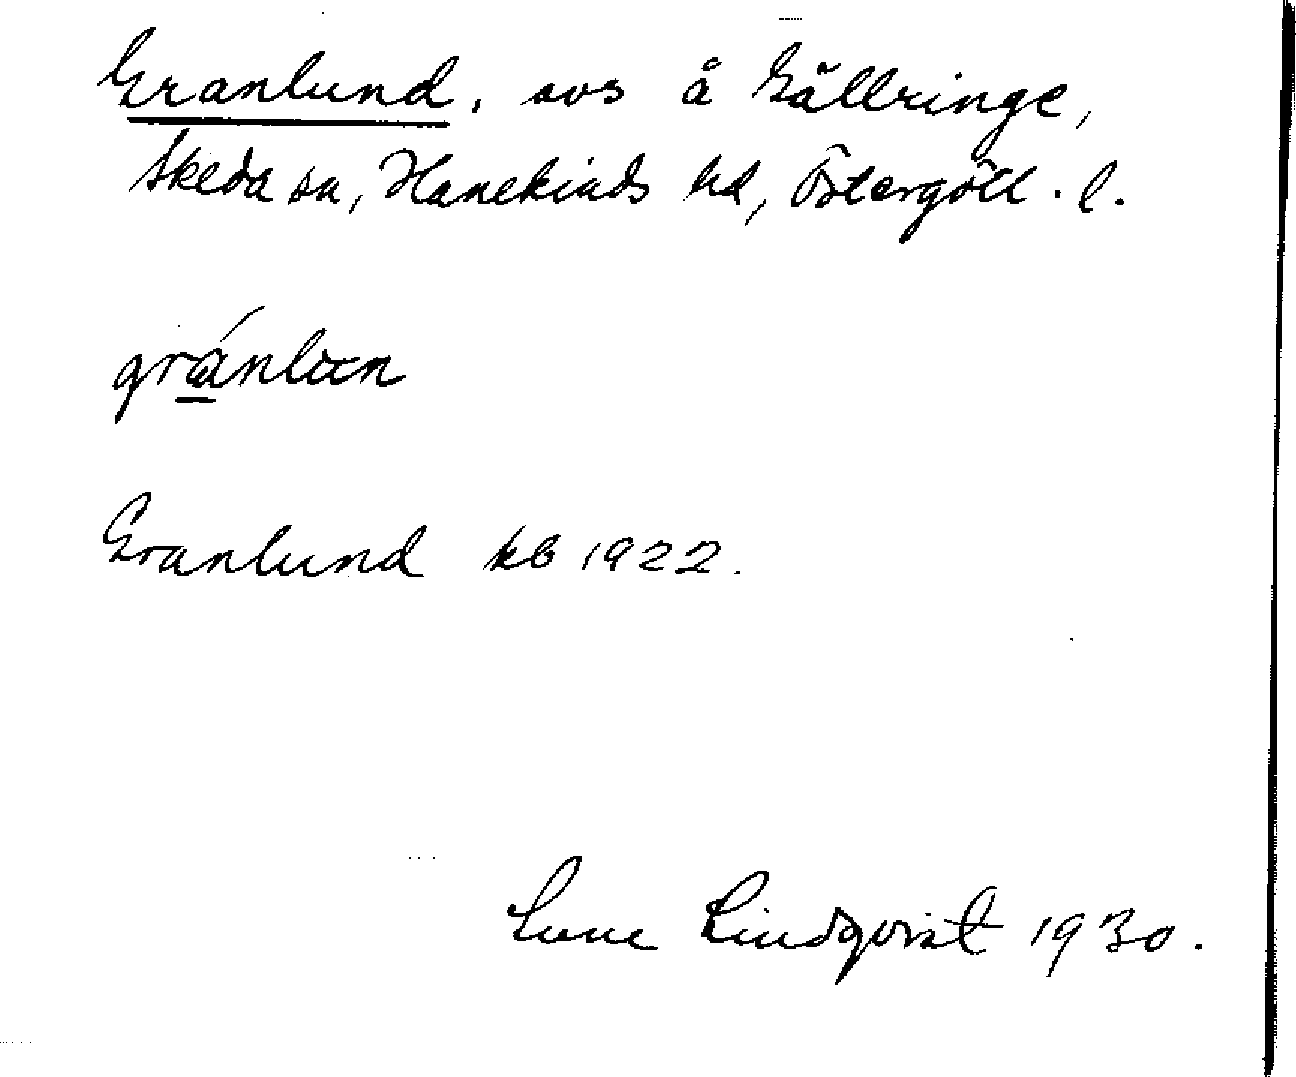 Granlund, avs å Gällringe,
Skeda sn, Hanekinds hd, Östergötl. l.
gránlun
Granlund kb 1922.
Sune Lindqvist 1930.